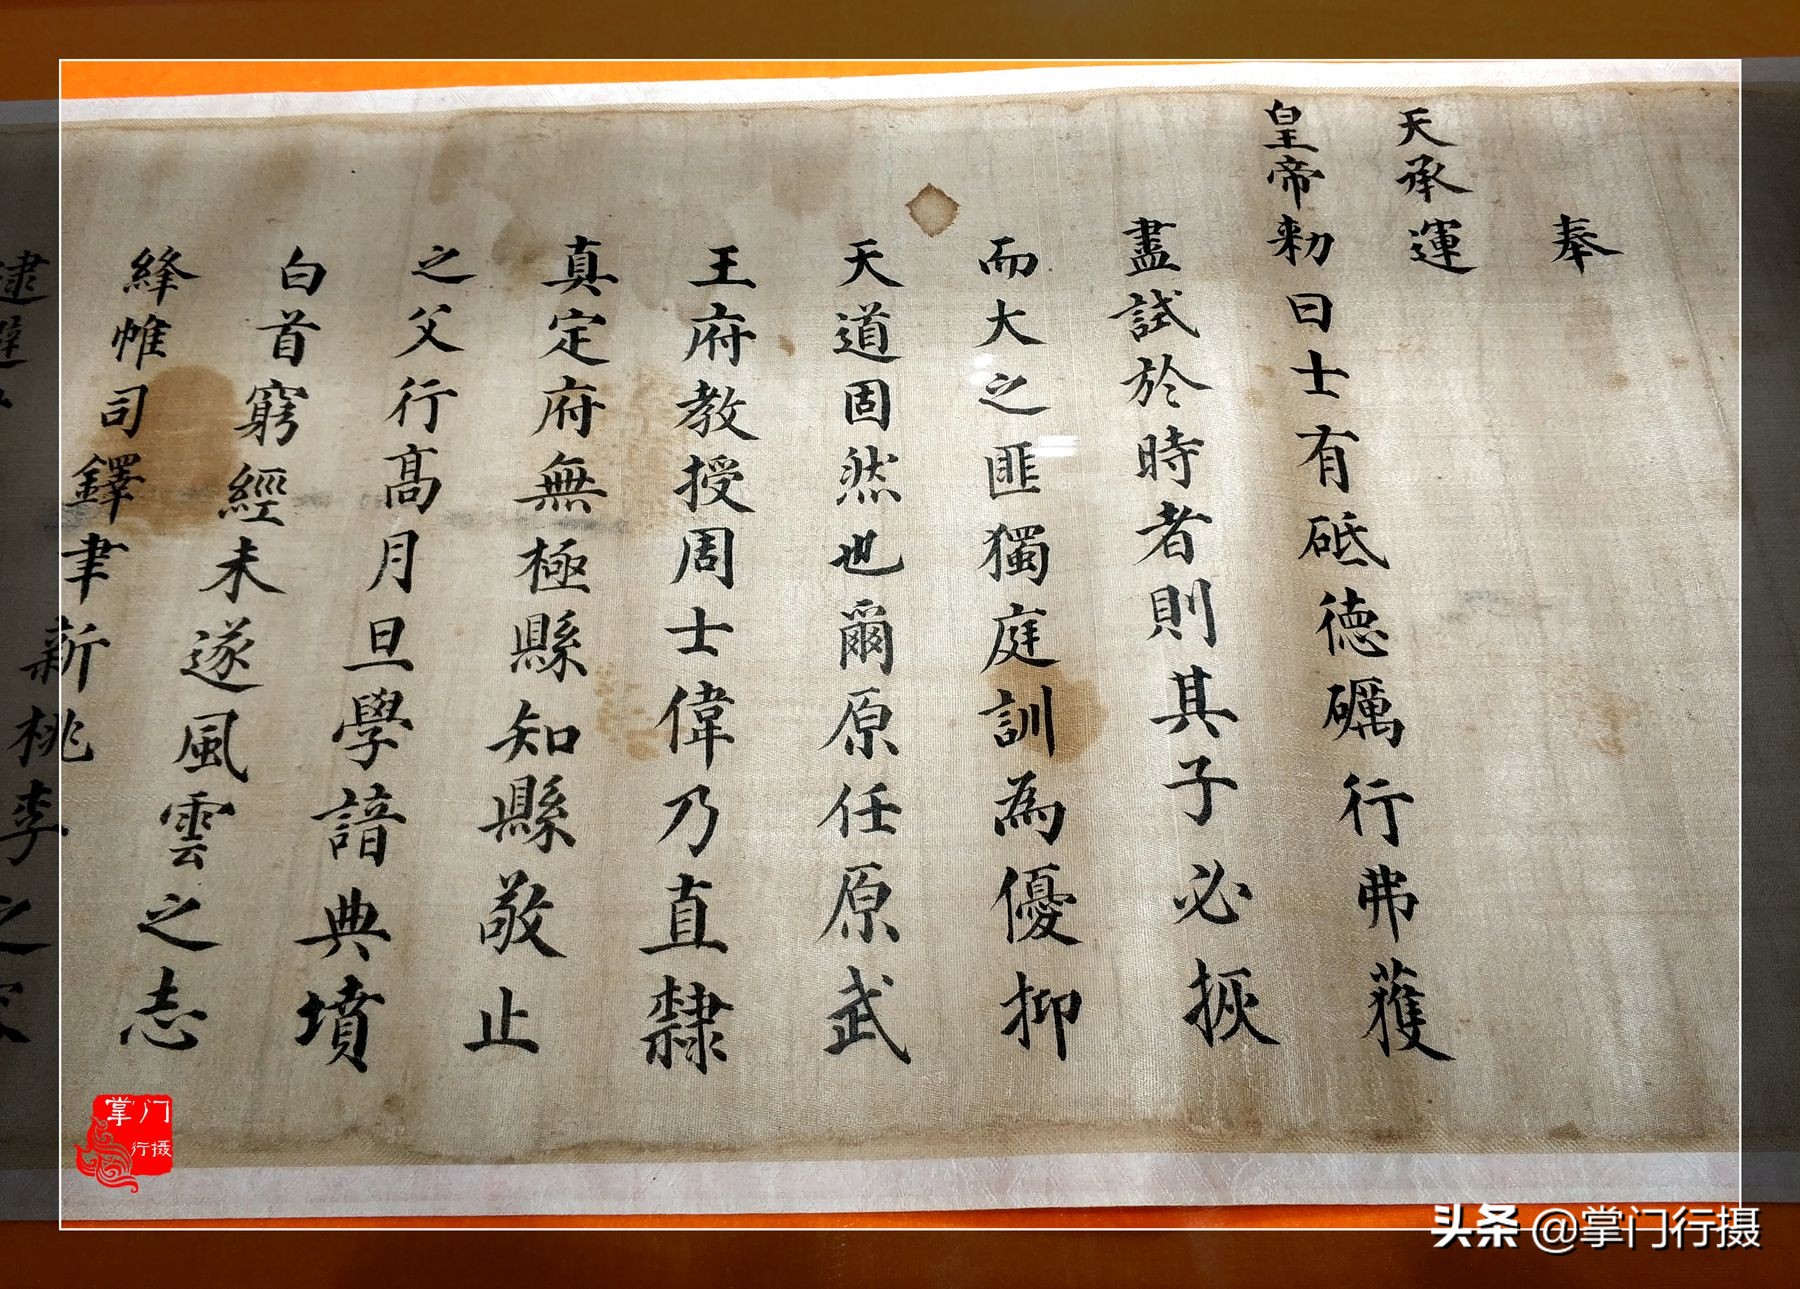 奉
天承運
皇帝勅曰士有砥德礪行弗獲
盡試於時者則其子必挾
而大之匪獨庭訓為優抑
天道固然也爾原任原武
王府教授周士偉乃直隸
真定府無極縣知縣敬止
之父行高月旦學諳典墳
白首窮經未遂風雲之志
絳帷司鐸聿新桃李之
掌门
行摄
头条 @掌门行摄